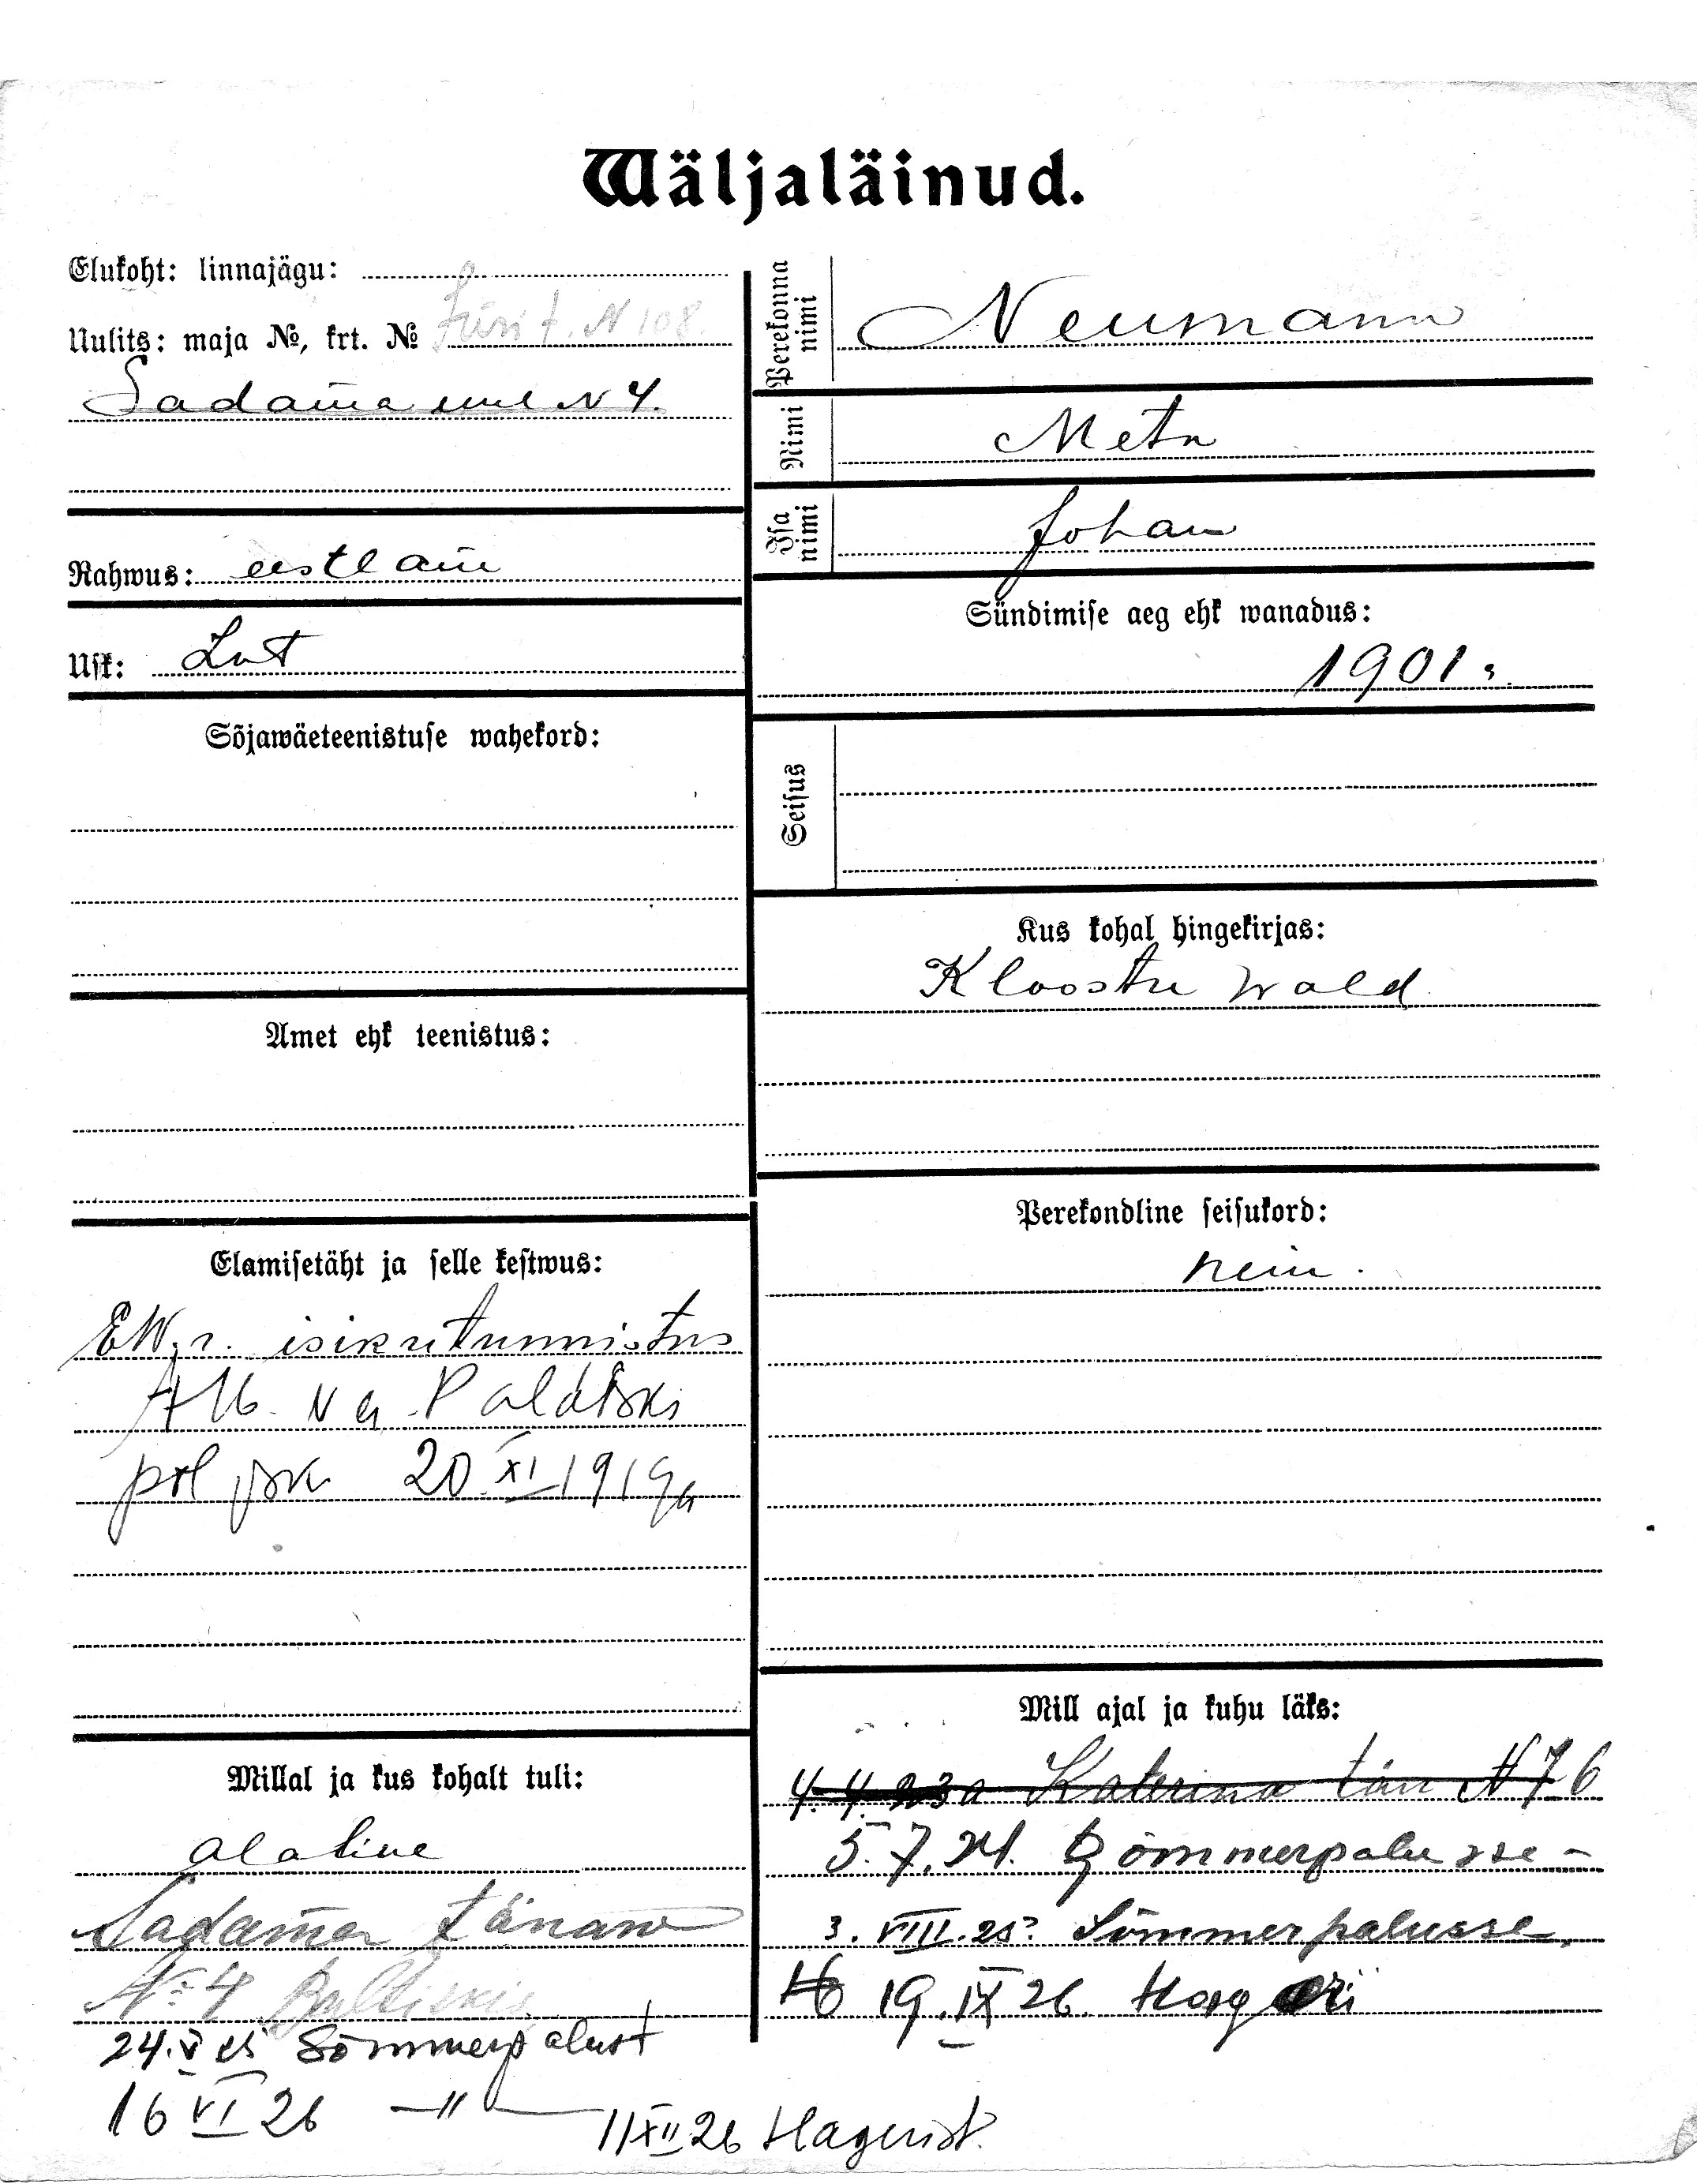 Wäljaläinud.
Elukoht: linnajägu:
Uulits: maja №, krt. № Jüri t. N 108.
Sadama uul N 4.
Rahwus: eestlane
Usk: Lut
Sõjawäeteenistuse wahekord:
Amet ehk teenistus:
Elamisetäht ja selle kestwus:
EW. r. isikutunnistus
A 16 Paldiski
pol 20 XI 1919 a
Millal ja kus kohalt tuli:
alaline
Sadama tänaw
№ 4 Baltiskis
24. V 25 Sömmerpalust
16 VI 26 —"—
11 XII 26 Hagerist.
Perekonna nimi Neumann
Nimi Meta
Isa nimi Johan
Sündimise aeg ehk wanadus:
1901.
Seisus
Kus kohal hingekirjas:
Kloostri wald
Perekondline seisukord:
neiu.
Mill ajal ja kuhu läks:
4. 4. 23 a Katerina tän N 76
5. 7. 24. Sömmerpalusse -
3. VIII. 25. Sömmerpalusse.
19. IX 26. Hageri